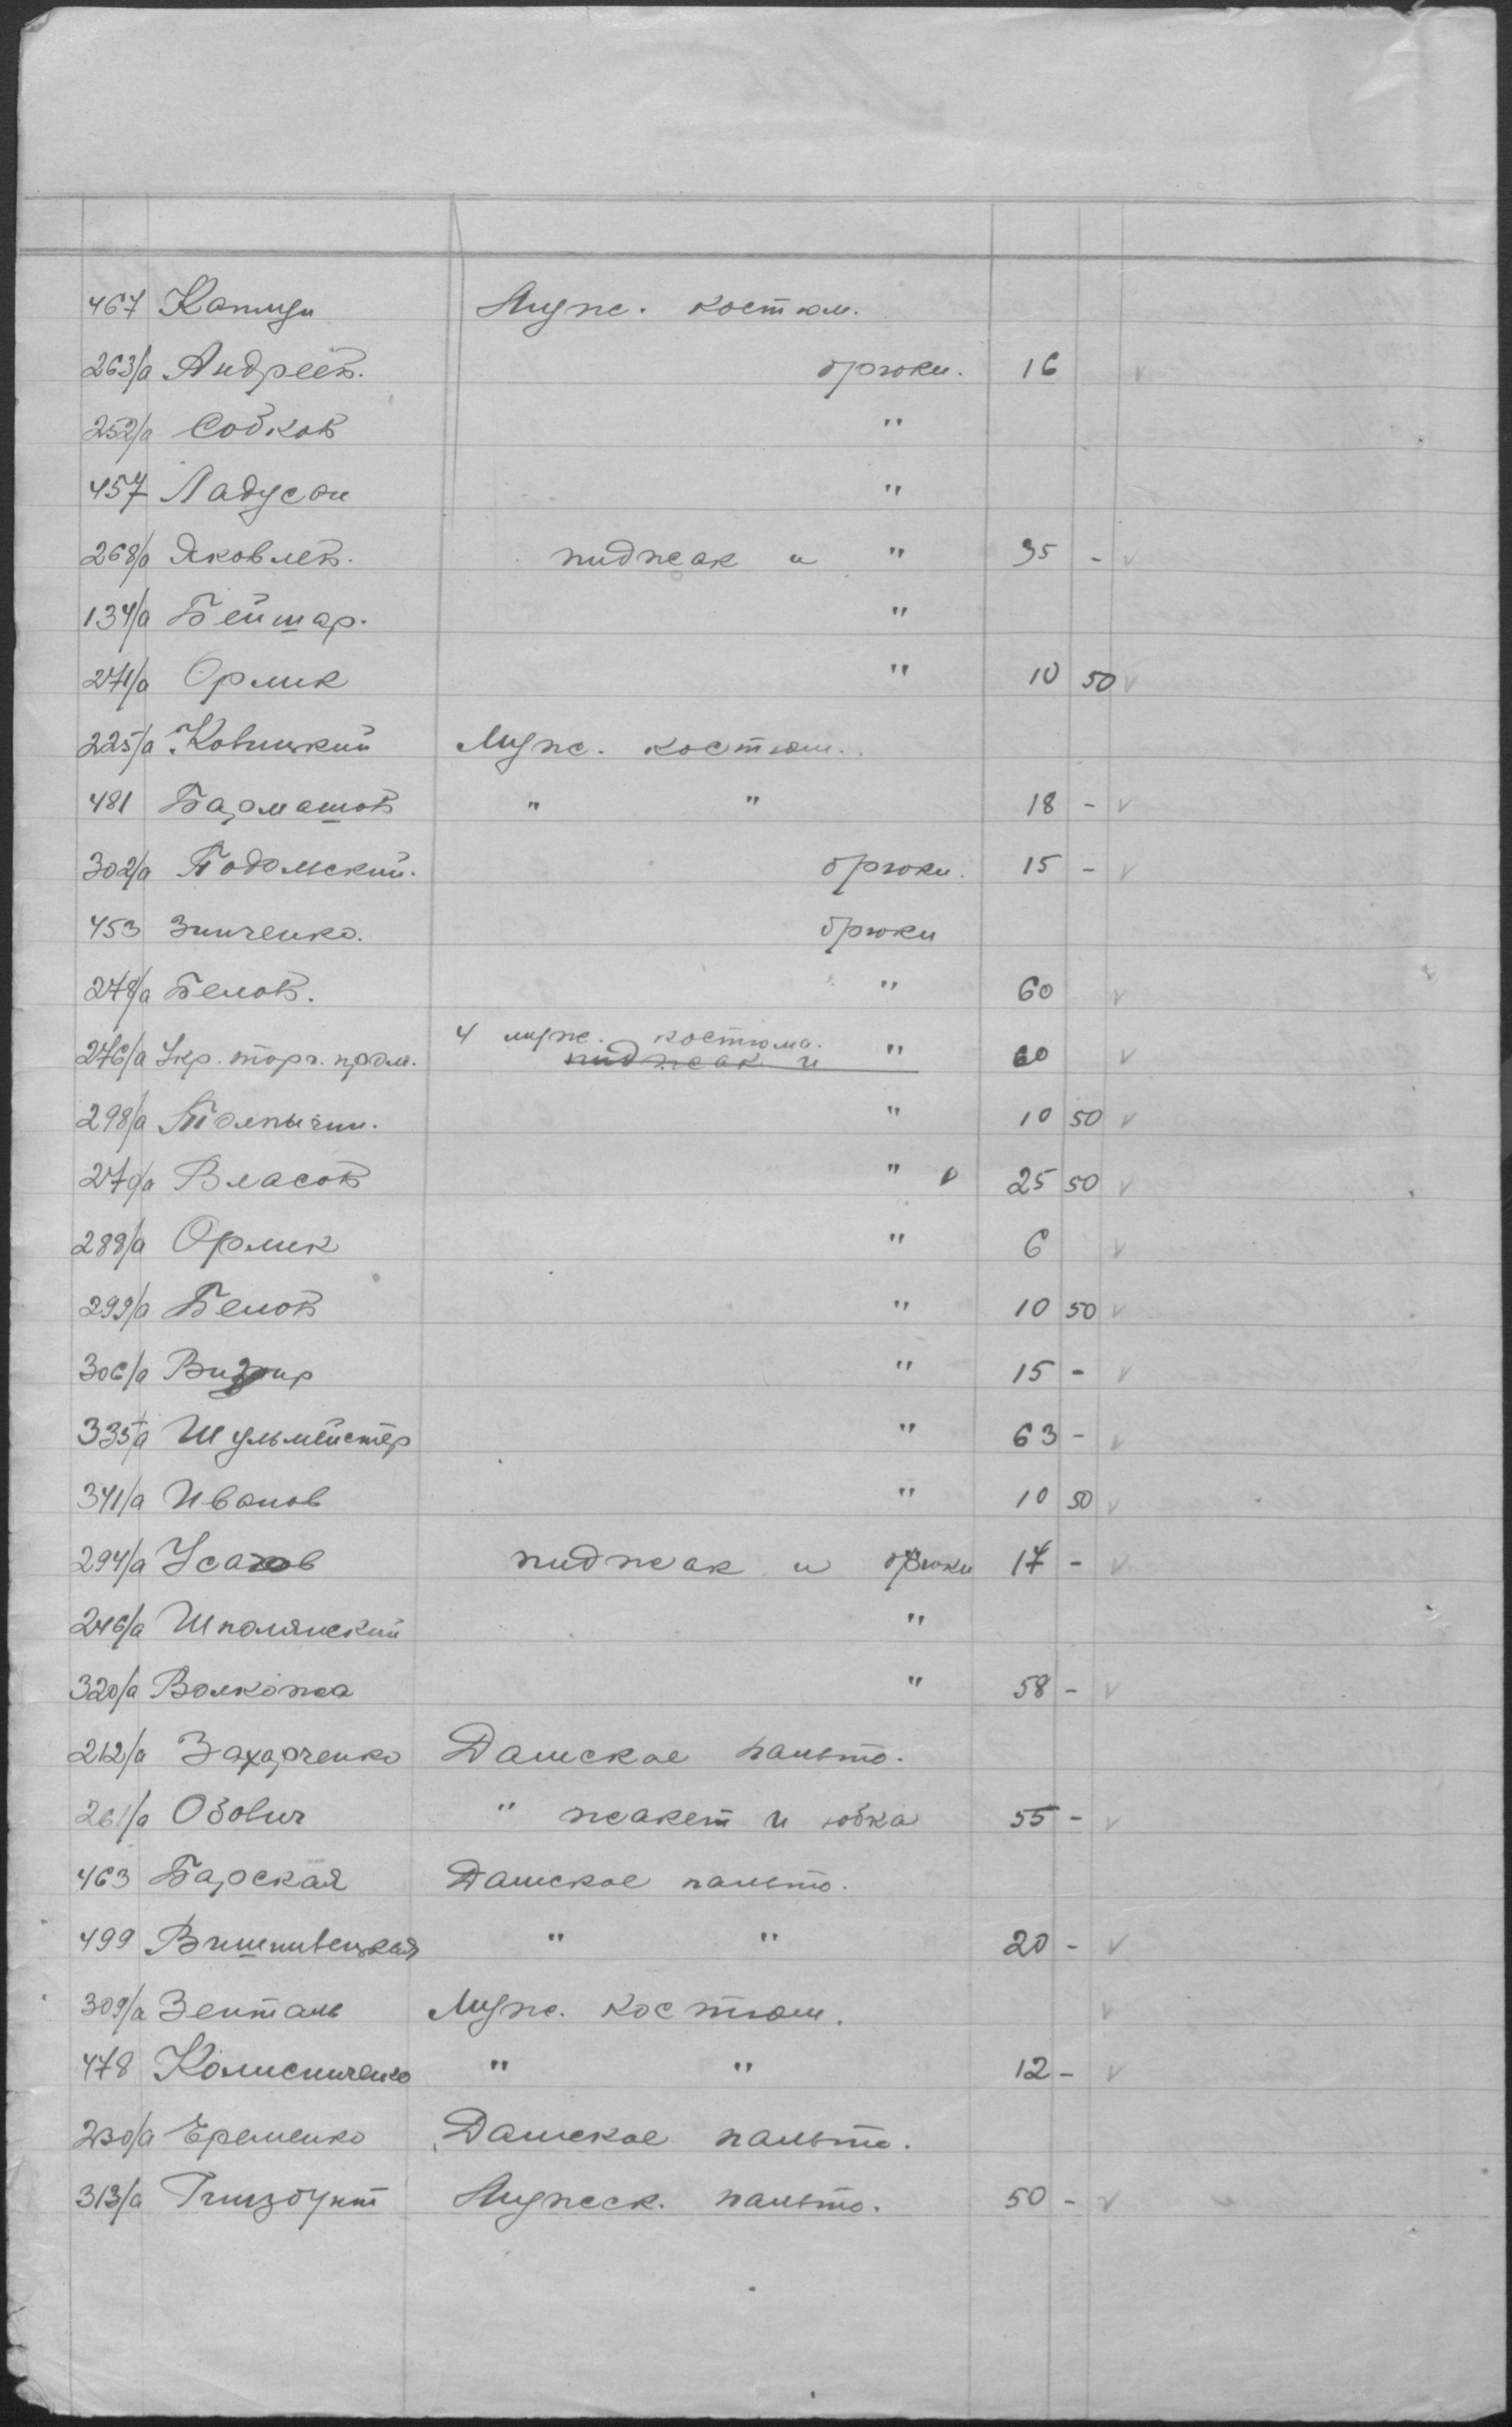 467 Капиуи Мужс. костюм.
263/а Андреев. брюки. 16 v
252/а Собков "
457 Ладусон "
268/а Яковлев. пиджак и " 35 - v
134/а Бейшар. "
271/а Орлик " 10 50 v
225/а Ковицкий Мужс. костюм.
481 Бармашов " " 18 - v
302/а Подольский. брюки. 15 - v
453 Зинченко. брюки
278/а Белов. " 60 v
276/а Укр. торг. пром. 4 мужс. костюма. пиджак и " 60 v
298/а Толпыгин. " 10 50 v
270/а Власов " v 25 50 v
288/а Орлик " 6 v
299/а Белов " 10 50 v
306/а Визир " 15 - v
335/а Шульмейстер " 63 - v
341/а Иванов " 10 50 v
294/а Усахов пиджак и брюки 17 - v
246/а Шполянский "
320/а Волкопа " 58 - v
212/а Захарченко Дамское пальто.
261/а Озович " жакет и юбка 55 - v
463 Барская Дамское пальто.
499 Вишнивецкая " " 20 - v
309/а Зенталь Мужс. костюм. v
478 Колисниченко " " 12 - v
230/а Еременко Дамское пальто.
313/а Гинзбунт Мужеск. пальто. 50 - v